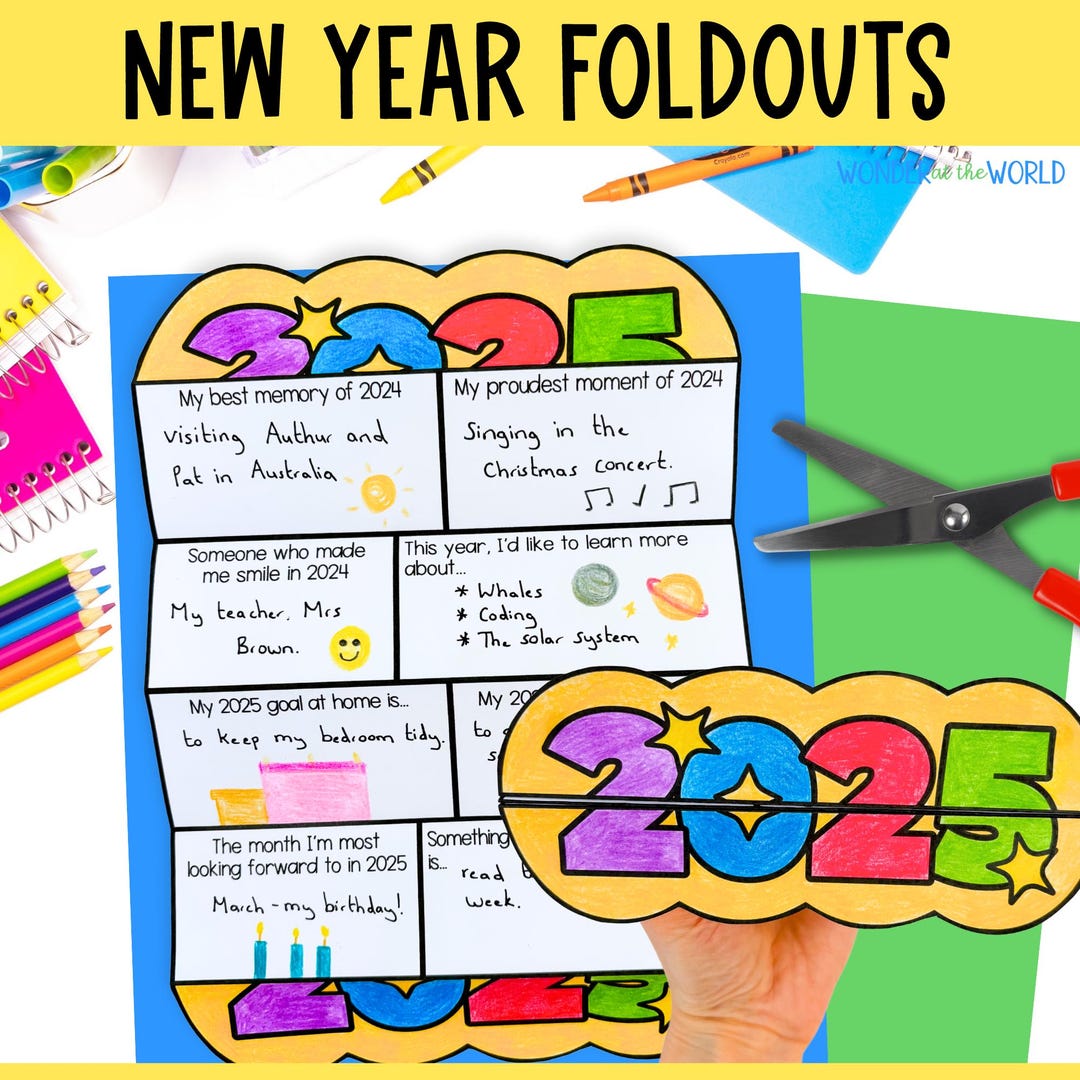 NEW YEAR FOLDOUTS
Crayola.com
WONDER at the WORLD
2025
My best memory of 2024
Visiting Authur and
Pat in Australia
My proudest moment of 2024
Singing in the
Christmas concert.
Someone who made
me smile in 2024
My teacher, Mrs
Brown.
This year, I'd like to learn more
about...
* Whales
* Coding
* The solar system
My 2025 goal at home is...
to keep my bedroom tidy.
My
to
The month I'm most
looking forward to in 2025
March - my birthday!
Something
is...
read
week.
2025
2025